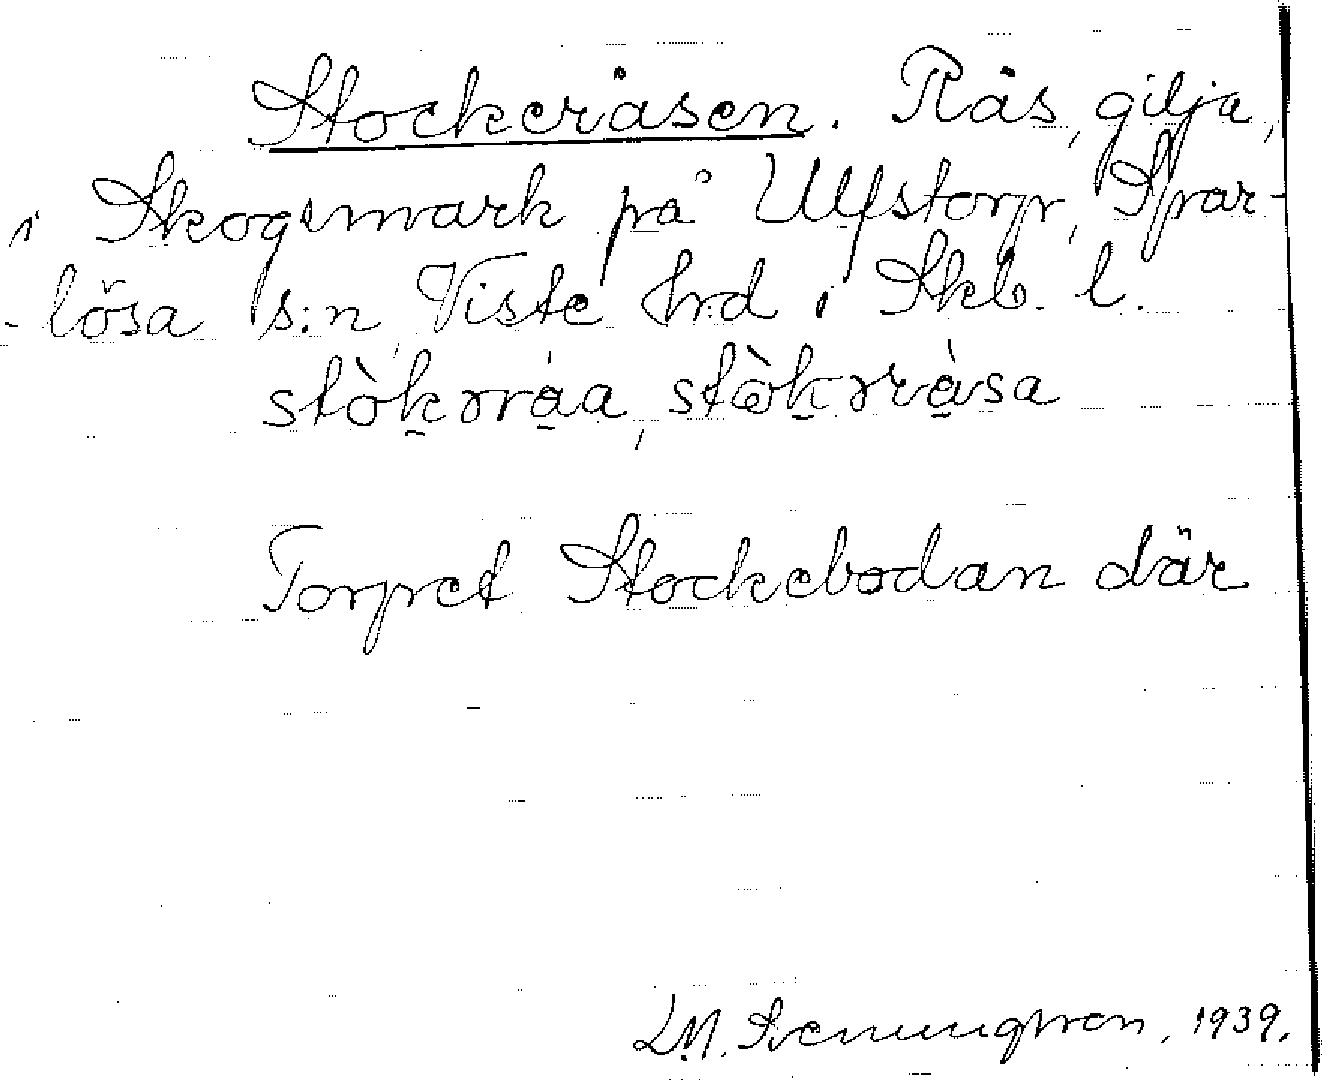 Stockeråsen. Rås, gilja,
i Skogsmark på Ulfstorp, Spar-
-lösa s:n, Viste hrd i Skb. l.
stòkrråa, stòkrråsa
Torpet Stockebodan där
1939.